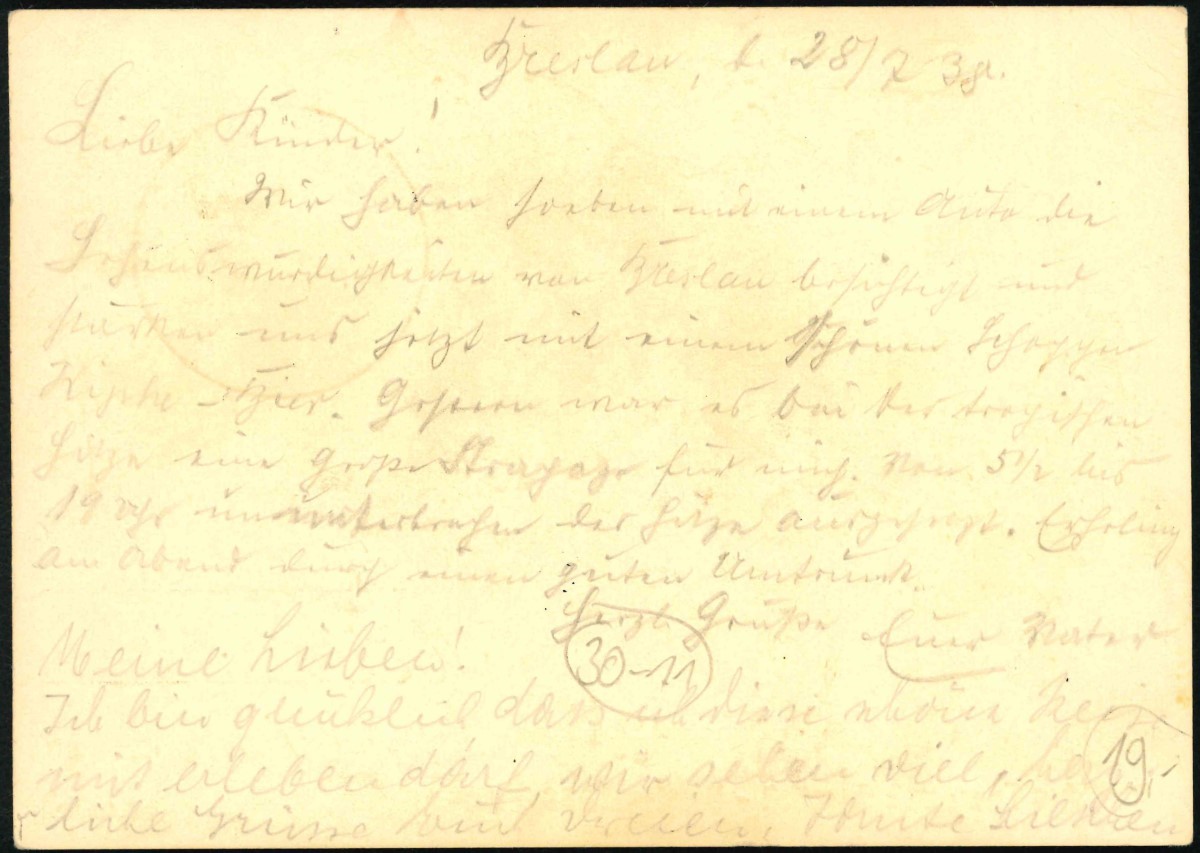 Breslau, d. 28/7 38.
Liebe Kinder!
Wir haben soeben mit einem Auto die
Sehenswürdigkeiten von Breslau besichtigt und
stärken uns jetzt mit einem schönen Schoppen
Kipke-Bier. Gestern war es bei der tropischen
Hitze eine große Strapaze für mich. Von 5½ bis
19 Uhr ununterbrochen der Hitze ausgesetzt. Erholung
am Abend durch einen guten Umtrunk.
Herzl. Grüße Euer Vater
30-11
Meine Lieben!
Ich bin glücklich, daß ich diese schöne
mit erleben darf, wir sehen viel,
liche Grüsse Euch Dreien,
19